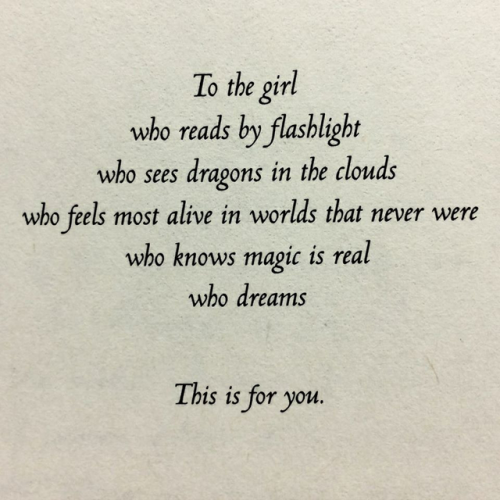 To the girl
who reads by flashlight
who sees dragons in the clouds
who feels most alive in worlds that never were
who knows magic is real
who dreams
This is for you.